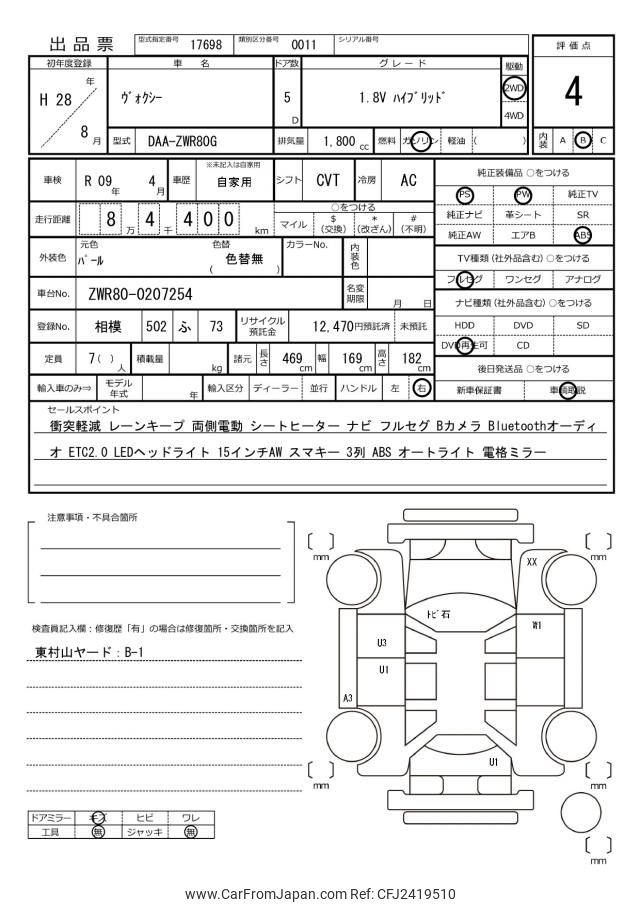 出品票 型式指定番号 17698 類別区分番号 0011 シリアル番号
評価点
4
内装 A B C
初年度登録 車名 ドア数 グレード 駆動
H 28 年 8 月
ヴォクシー 5 D 1.8V ハイブリッド 2WD 4WD
型式 DAA-ZWR80G 排気量 1,800 cc 燃料 ガソリン 軽油 ( )
車検 R 09 年 4 月 車歴 ※未記入は自家用 自家用 シフト CVT 冷房 AC
走行距離 8 万 4 千 4 0 0 km
○をつける
マイル $ (交換) * (改ざん) # (不明)
外装色 元色 パール 色替 ( 色替無 ) カラーNo. 内装色
車台No. ZWR80-0207254 名変期限 月 日
登録No. 相模 502 ふ 73 リサイクル預託金 12,470円預託済 未預託
定員 7( ) 人 積載量 kg 諸元 長さ 469 cm 幅 169 cm 高さ 182 cm
輸入車のみ⇒ モデル年式 年 輸入区分 ディーラー 並行 ハンドル 左 右
純正装備品 ○をつける
PS PW 純正TV
純正ナビ 革シート SR
純正AW エアB ABS
TV種類(社外品含む) ○をつける
フルセグ ワンセグ アナログ
ナビ種類(社外品含む) ○をつける
HDD DVD SD
DVD再生可 CD
後日発送品 ○をつける
新車保証書 車輌取説
セールスポイント
衝突軽減 レーンキープ 両側電動 シートヒーター ナビ フルセグ Bカメラ Bluetoothオーディ
オ ETC2.0 LEDヘッドライト 15インチAW スマキー 3列 ABS オートライト 電格ミラー
注意事項・不具合箇所
検査員記入欄：修復歴「有」の場合は修復箇所・交換箇所を記入
東村山ヤード：B-1
mm mm
XX
トビ石
W1
U3
U1
A3
U1
mm mm
mm
ドアミラー キズ ヒビ ワレ
工具 無 ジャッキ 無
www.CarFromJapan.com Ref: CFJ2419510